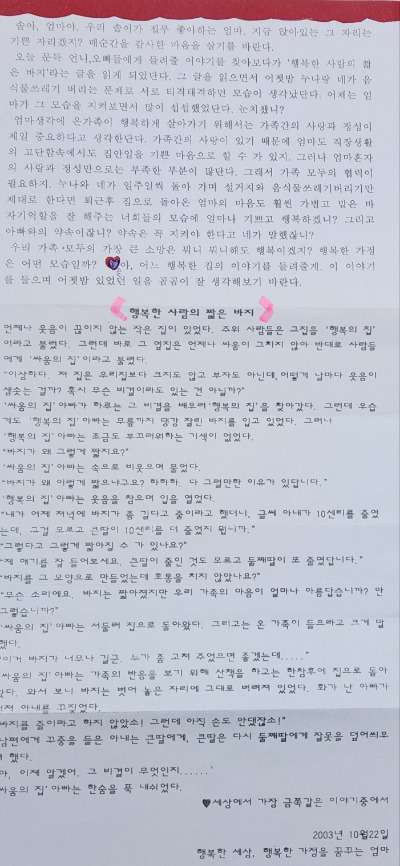 솔아, 엄마야. 우리 솔이가 젤루 좋아하는 엄마. 지금 앉아있는 그 자리는
기쁜 자리겠지? 매순간을 감사한 마음을 살기를 바란다.
오늘 문득 언니,오빠들에게 들려줄 이야기를 찾아보다가 '행복한 사람의 짧
은 바지'라는 글을 읽게 되었단다. 그 글을 읽으면서 어젯밤 누나랑 네가 음
식물쓰레기 버리는 문제로 서로 티격태격하던 모습이 생각났단다. 어제는 엄
마가 그 모습을 지켜보면서 많이 섭섭했었단다. 눈치챘니?
엄마생각에 온가족이 행복하게 살아가기 위해서는 가족간의 사랑과 정성이
제일 중요하다고 생각한단다. 가족간의 사랑이 있기 때문에 엄마도 직장생활
의 고단함속에서도 집안일을 기쁜 마음으로 할 수 가 있지. 그러나 엄마혼자
의 사랑과 정성만으로는 부족한 부분이 많단다. 그래서 가족 모두의 협력이
필요하지. 누나와 네가 일주일씩 돌아 가며 설거지와 음식물쓰레기버리기만
제대로 한다면 퇴근후 집으로 돌아온 엄마의 마음도 훨씬 가볍고 맡은 바
자기역할을 잘 해주는 너희들의 모습에 엄마나 기쁘고 행복하겠니? 그리고
아빠와의 약속이잖니? 약속은 꼭 지켜야 한다고 네가 말했잖니?
우리 가족 모두의 가장 큰 소망은 뭐니 뭐니해도 행복이겠지? 행복한 가정
은 어떤 모습일까? 솔아, 어느 행복한 집의 이야기를 들려줄게. 이 이야기
를 들으며 어젯밤 있었던 일을 곰곰이 잘 생각해보기 바란다.
행복한 사람의 짧은 바지
언제나 웃음이 끊이지 않는 작은 집이 있었다. 주위 사람들은 그집을 '행복의 집'
이라고 불렀다. 그런데 바로 그 옆집은 언제나 싸움이 그치지 않아 반대로 사람들
에게 '싸움의 집'이라고 불렸다.
"이상하다. 저 집은 우리집보다 크지도 않고 부자도 아닌데,어떻게 날마다 웃음이
샘솟는 걸까? 혹시 무슨 비결이라도 있는 건 아닐까?"
'싸움의 집'아빠가 하루는 그 비결을 배우러'행복의 집'을 찾아갔다. 그런데 우습
게도 '행복의 집'아빠는 무릎까지 댕강 잘린 바지를 입고 있었다. 그러나
'행복의 집'아빠는 조금도 부끄러워하는 기색이 없었다.
"바지가 왜 그렇게 짧지요?"
'싸움의 집'아빠는 속으로 비웃으며 물었다.
"바지가 왜 이렇게 짧으냐구요? 하하하. 다 그럴만한 이유가 있답니다."
'행복의 집'아빠는 웃음을 참으며 입을 열었다.
"내가 어제 저녁에 바지가 좀 길다고 줄이라고 했더니, 글쎄 아내가 10센티를 줄였
는데, 그걸 모르고 큰딸이 10센티를 더 줄였지 뭡니까."
"그렇다고 그렇게 짧아질 수 가 있나요?"
"제 얘기를 잘 들어보세요. 큰딸이 줄인 것도 모르고 둘째딸이 또 줄였답니다."
"바지를 그 모양으로 만들었는데 호통을 치지 않았나요?"
"무슨 소리예요. 바지는 짧아졌지만 우리 가족의 마음이 얼마나 아름답습니까? 안
그렇습니까?"
'싸움의 집'아빠는 서둘러 집으로 돌아왔다. 그리고는 온 가족이 들으라고 크게 말
했다.
"이거 바지가 너무나 길군. 누가 좀 고쳐 주었으면 좋겠는데....."
'싸움의 집'아빠는 가족의 반응을 보기 위해 산책을 하고는 한참후에 집으로 돌아
왔다. 와서 보니 바지는 벗어 놓은 자리에 그대로 버려져 있었다. 화가 난 아빠가
먼저 아내를 꾸짖었다.
"바지를 줄이라고 하지 않았소! 그런데 아직 손도 안댔잖소!"
남편에게 꾸중을 들은 아내는 큰딸에게, 큰딸은 다시 둘째딸에게 잘못을 덮어씌우
려 했다.
"아, 이제 알겠어. 그 비결이 무엇인지......'
'싸움의 집'아빠는 한숨을 푹 내쉬었다.
♥세상에서 가장 금쪽같은 이야기중에서
2003년 10월22일
행복한 세상, 행복한 가정을 꿈꾸는 엄마